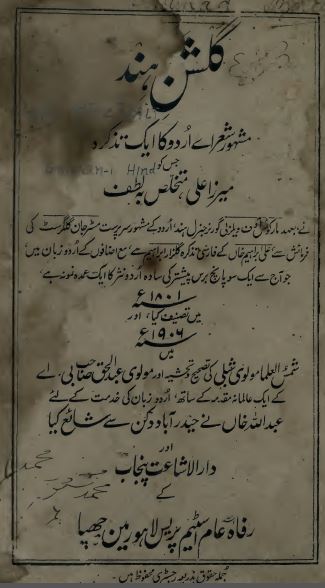 گلشنِ ہند
مشہور شعراے اُردو کا ایک تذکرہ
جس کو
Gulshan-i Hind
میرزا علی متخلص بہ لطف
نے بعہد مارکوئس آف ویلزلی گورنر جنرل ہند، اُردو کے مشہور سرپرست مسٹر جان گلکرسٹ کی
فرمائش سے، علی ابراہیم خاں کے فارسی تذکرہ گلزار ابراہیم سے، مع اضافوں کے اُردو زبان میں،
جو آج سے ایک سو پانچ برس پیشتر کی سادہ اُردو نثر کا ایک عمدہ نمونہ ہے،
۱۸۰۱ء
میں تصنیف کیا، اور
۱۹۰۶ء
میں
شمس العلما مولوی شبلی کی تصحیح و تحشیہ اور مولوی عبدالحق صاحب بی۔ اے
کے ایک عالمانہ مقدمہ کے ساتھ، اُردو زبان کی خدمت کے لئے
عبداللہ خاں نے حیدرآباد دکن سے شائع کیا
اور
دارالاشاعت پنجاب
کے
رفاہ عام سٹیم پریس لاہور مین چھپا
جملہ حقوق بذریعہ رجسٹری محفوظ ہیں۔